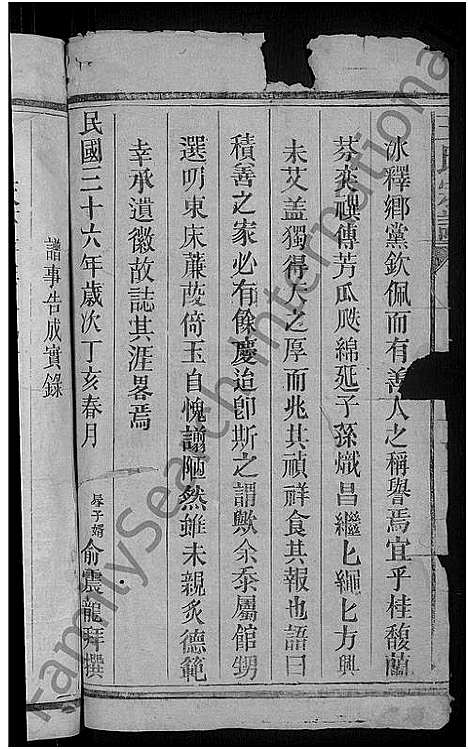 氏宗譜
冰釋鄉黨欽佩而有善人之稱譽焉宜乎桂馥蘭
芬奕禩傳芳瓜瓞綿延子孫熾昌繼匕繩匕方興
未艾蓋獨得天之厚而兆其禎祥食其報也語曰
積善之家必有餘慶迨卽斯之謂歟余忝屬館甥
選叨東床蒹葭倚玉自愧譾陋然雖未親炙德範
幸承遺徽故誌其涯畧焉
民國三十六年歲次丁亥春月
眷子婿俞震龍拜撰
譜事告成實錄
FamilySearch International